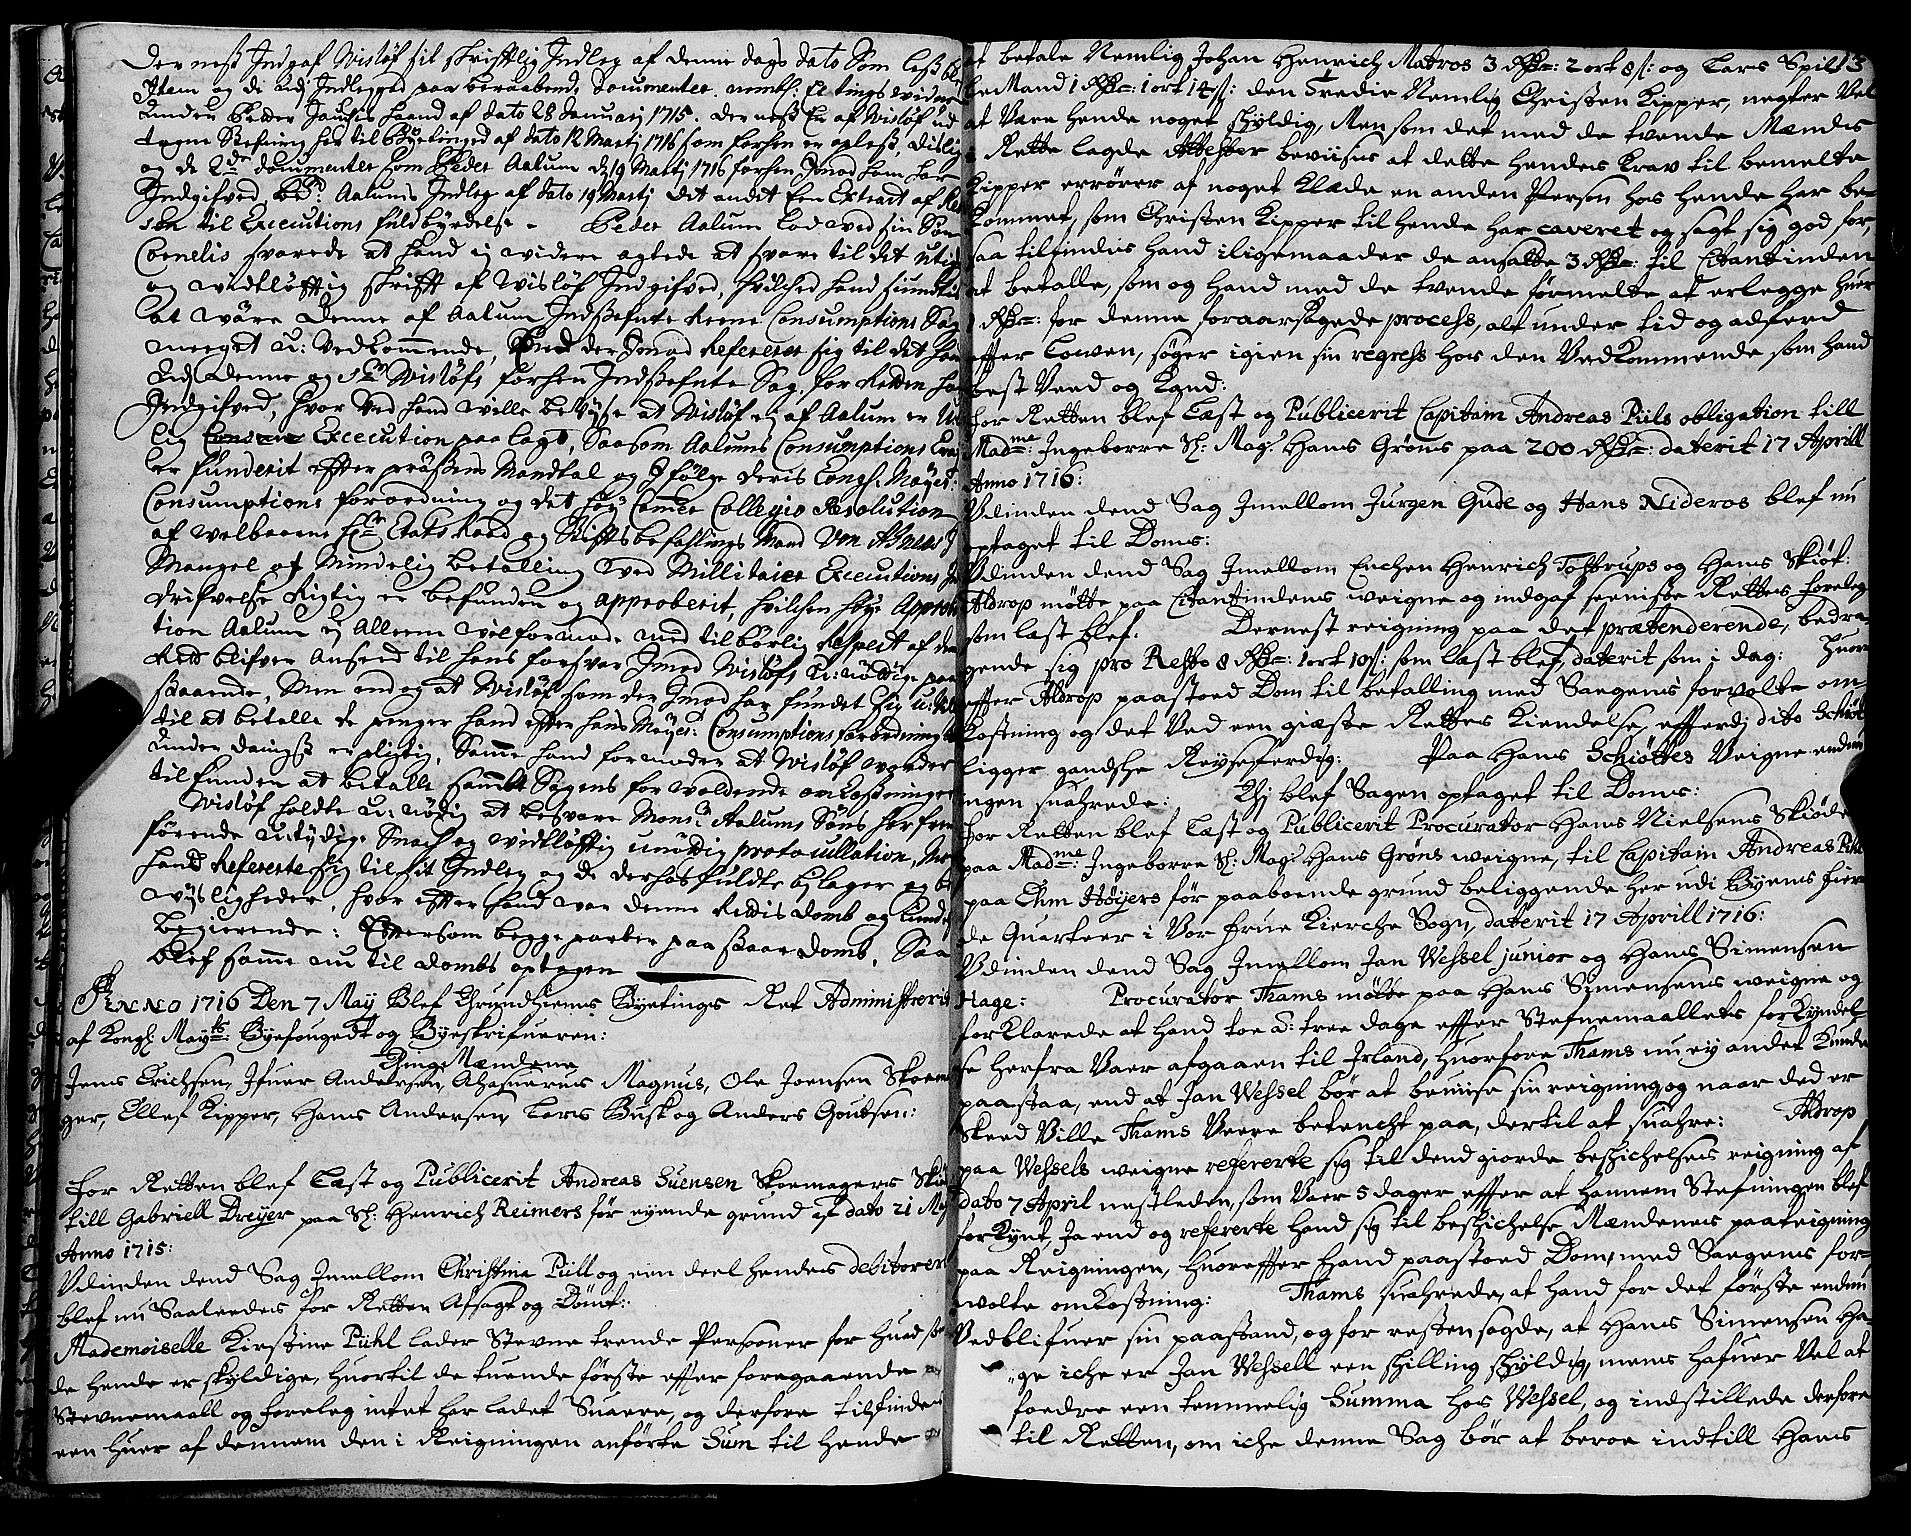 Dernest Indgaf Wisløf sit skrifftlig Indleg af denne dags dato som lest blef
Item og de udj Indlegget paa beraabende documenter. nembl: Et tings widne
under Peder Jouchis haand af dato 28 Januarij 1715. dernest En af Wisløf ud
tagne Stefning her til Byetinget af dato 12 Martij 1716 som forhen er oplest disl
og de 2de documenter som Peder Aalum d 19 Martij 1716 forhen Imod ham har
Indgifved, be: Aalums Indleg af dato 19 Martij det andit Een Extract af
til Executions fuldbyrdelse - Peder Aalum Lod ved sin Søn
Cornelis svarede at hand ej widere agtede at svare til det
og widtløfftig skrifft af Wisløf Indgifved, hvilched hand
at wære denne af Aalum Indstefnte Reene Consumptions Sag
meeget u: Vedkommende, der Imod Refererer sig til det
udj denne og Sr Wisløfs forhen Indstefnte Sag, for Retten
Indgifved, hvor ved hand wille bewyse at Wisløf ej af Aalum er
lig Execution paa lagt, Saasom Aalums Consumptions
er funderit effter præstens Mandtal og I følge deris Kongl: Mayst:
Consumptions forordning og det høye Camer Collegio Resolution
af Welbaarne Hr Etats Raad og Stifftsbefahlings Mand Von Ahnen I
Mangel af Mindelig betalling Wed Millitaire Executions
drifvelse Rigtig er befunden og approberit, hvilchen høye
tion Aalum ej Alleene wil formode med tilbørlig Respect af
Rett blifver Anseed til hans forsvar Imod Wisløfs u:nødige paa
staaende, Men end og at Wisløf som der Imod har fundet sig
til at betalle de penger hand effter hans Mayst: Consumptions forordning
under danigst er pligtig, Samme hand formoder at Wisløf worder
tilfunden at betalle sambt Sagens for woldende omkostninger
Wisløf holdte u:nødig at besvare Monsr Aalums Søns her frem
førende utydige Snack og widtløfftig unødig protocullation,
hand Refererte sig til sit Indleg og de derhos fuldte bylager og be
wysligheder, hvor effter hand war denne Rettis domb og
begierende: Effversom begge parter paa staar domb, Saa
blef samme nu til dombs optagen
Anno 1716 Den 7 May Blef Thrundhiems Byetings Ret Administrerit
af Kongl Mayts: Byefougedt og Byeskrifueren:
Dinge Mændene
Jens Erichsen, Ifuer Andersen, Ahasuerus Magnus, Ole Joensen
ger, Ellef Kipper, Hans Andersen, Lars Busk og Anders Goutsen:
For Retten blef Læst og Publicerit Andreas Suensen Skoemagers
till Gabriell Dreyer paa Sl: Henrich Reimers før eyende grund af dato 21
Anno 1715:
Udinden dend Sag Imellom Christina Piill og een deel hendes debitorer
blef nu Saaledes for Retten Afsagt og Dømt:
Mademoiselle Kirstine Pühl lader Stevne trende Persooner for huad
de hende er skyldige, huortil de tuende første effter foregaaende
Stevnemaall og foreleg intet har ladet Suare, og derfore tilfindes
een huer af dennem den i Reigningen anførte Sum til hende
at betale Nemlig Johan Henrich Matros 3 Rdr: 2 ort 8 s: og Lars Spil 13
leMand 1 Rdr: 1 ort 14 s: den Tredie Nemlig Christen Kipper, negter Vel
at Være hende noget skyldig, Men som det med de tvende Mænds
i Rette lagde Attester beviises at dette hendes krav til bemelte
Kipper errører af noget Klæde en anden Person hos hende har be-
kommet, som Christen Kipper til hende har caveret og sagt sig god for,
saa tilfindes hand iligemaader de ansatte 3 Rdr: til Citantinden
at betalle, som og hand med de tvende førmelte at erlegge huer
1 Rdr: for denne foraarsagede process, alt under tid og adferd
effter Lowen, søger igien sin regress hos den Vedkommende som hand
best Veed og kand:
For Retten blef Læst og Publicerit Capitain Andreas Piils obligation till
Madme: Ingeborre Sl: Magr Hans Grøns paa 200 Rdr: daterit 17 Aprill
Anno 1716:
Udinden dend Sag Imellom Jurgen Gude og Hans Nideros blef nu
optaget til Doms:
Udinden dend Sag Imellom Enchen Henrich Tofttrups og Hans Skiøt:
Aldrop møtte paa Citantindens weigne og indgaf seeniste Rettes foreleg
som læst blef. Dernest reigning paa det prætenderende, bedra-
gende sig pro Resto 8 Rdr: 1 ort 10 s: som læst blef, daterit som i dag: Huor
effter Aldrop paastoed Dom til betalling med Saagens forvolte om
kostning og det Ved een giæste Rettes Kiendelse, efftterdj dito Schiøt
ligger gandshe Reyseferdig: Paa Hans Schiøttes Veigne endnu
ingen suahrede: Thj blef Sagen optaget til Doms:
For Retten blef Læst og Publicerit Procurator Hans Nielsens Skiøde
paa Madme: Ingeborre Sl: Magr Hans Grøns weigne, til Capitain Andreas Pihl
paa Chm Høyers før paaboende grund beliggende her udi Byens fier
de Quarteer i Vor Frue Kierche Sogn, daterit 17 Aprill 1716:
Udinden dend Sag Imellom Jan Wessel junior og Hans Simensen
Hage: Procurator Thams møtte paa Hans Simensens weigne og
forklarede at hand toe a: tree dage effter Stefnemaallets forkyndel-
se herfra Vaer afgaaen til Irland, huorfore Thams nu ey andet kunde
paastaa, end at Jan Wessel bør at beuise sin reigning og naar ded er
skeed Ville Thams Veere betencht paa, dertil at suahre: Aldrop
paa Wessels weigne refererte sig til dend giorde beskichelses reigning af
dato 7 April nestleden, som Vaer 5 dager effter at hannem Stefningen blef
forkynt, Ja end og refererte hand sig til beskichelse Mændenes paateigning
paa Reigningen, huoreffter hand paastoed Dom, med Saagens for-
wolte omkostning: Thams suahrede, at hand for det første endnu
Vedblifuer sin paastand, og for resten sagde, at Hans Simensen Ha
ge iche er Jan Wessell een skilling skyldig, mens hafuer Vel at
foedre een temmelig Summa hos Wessel, og indstillede derfore
til Retten, om iche denne Sag bør at beroe indtill Hans